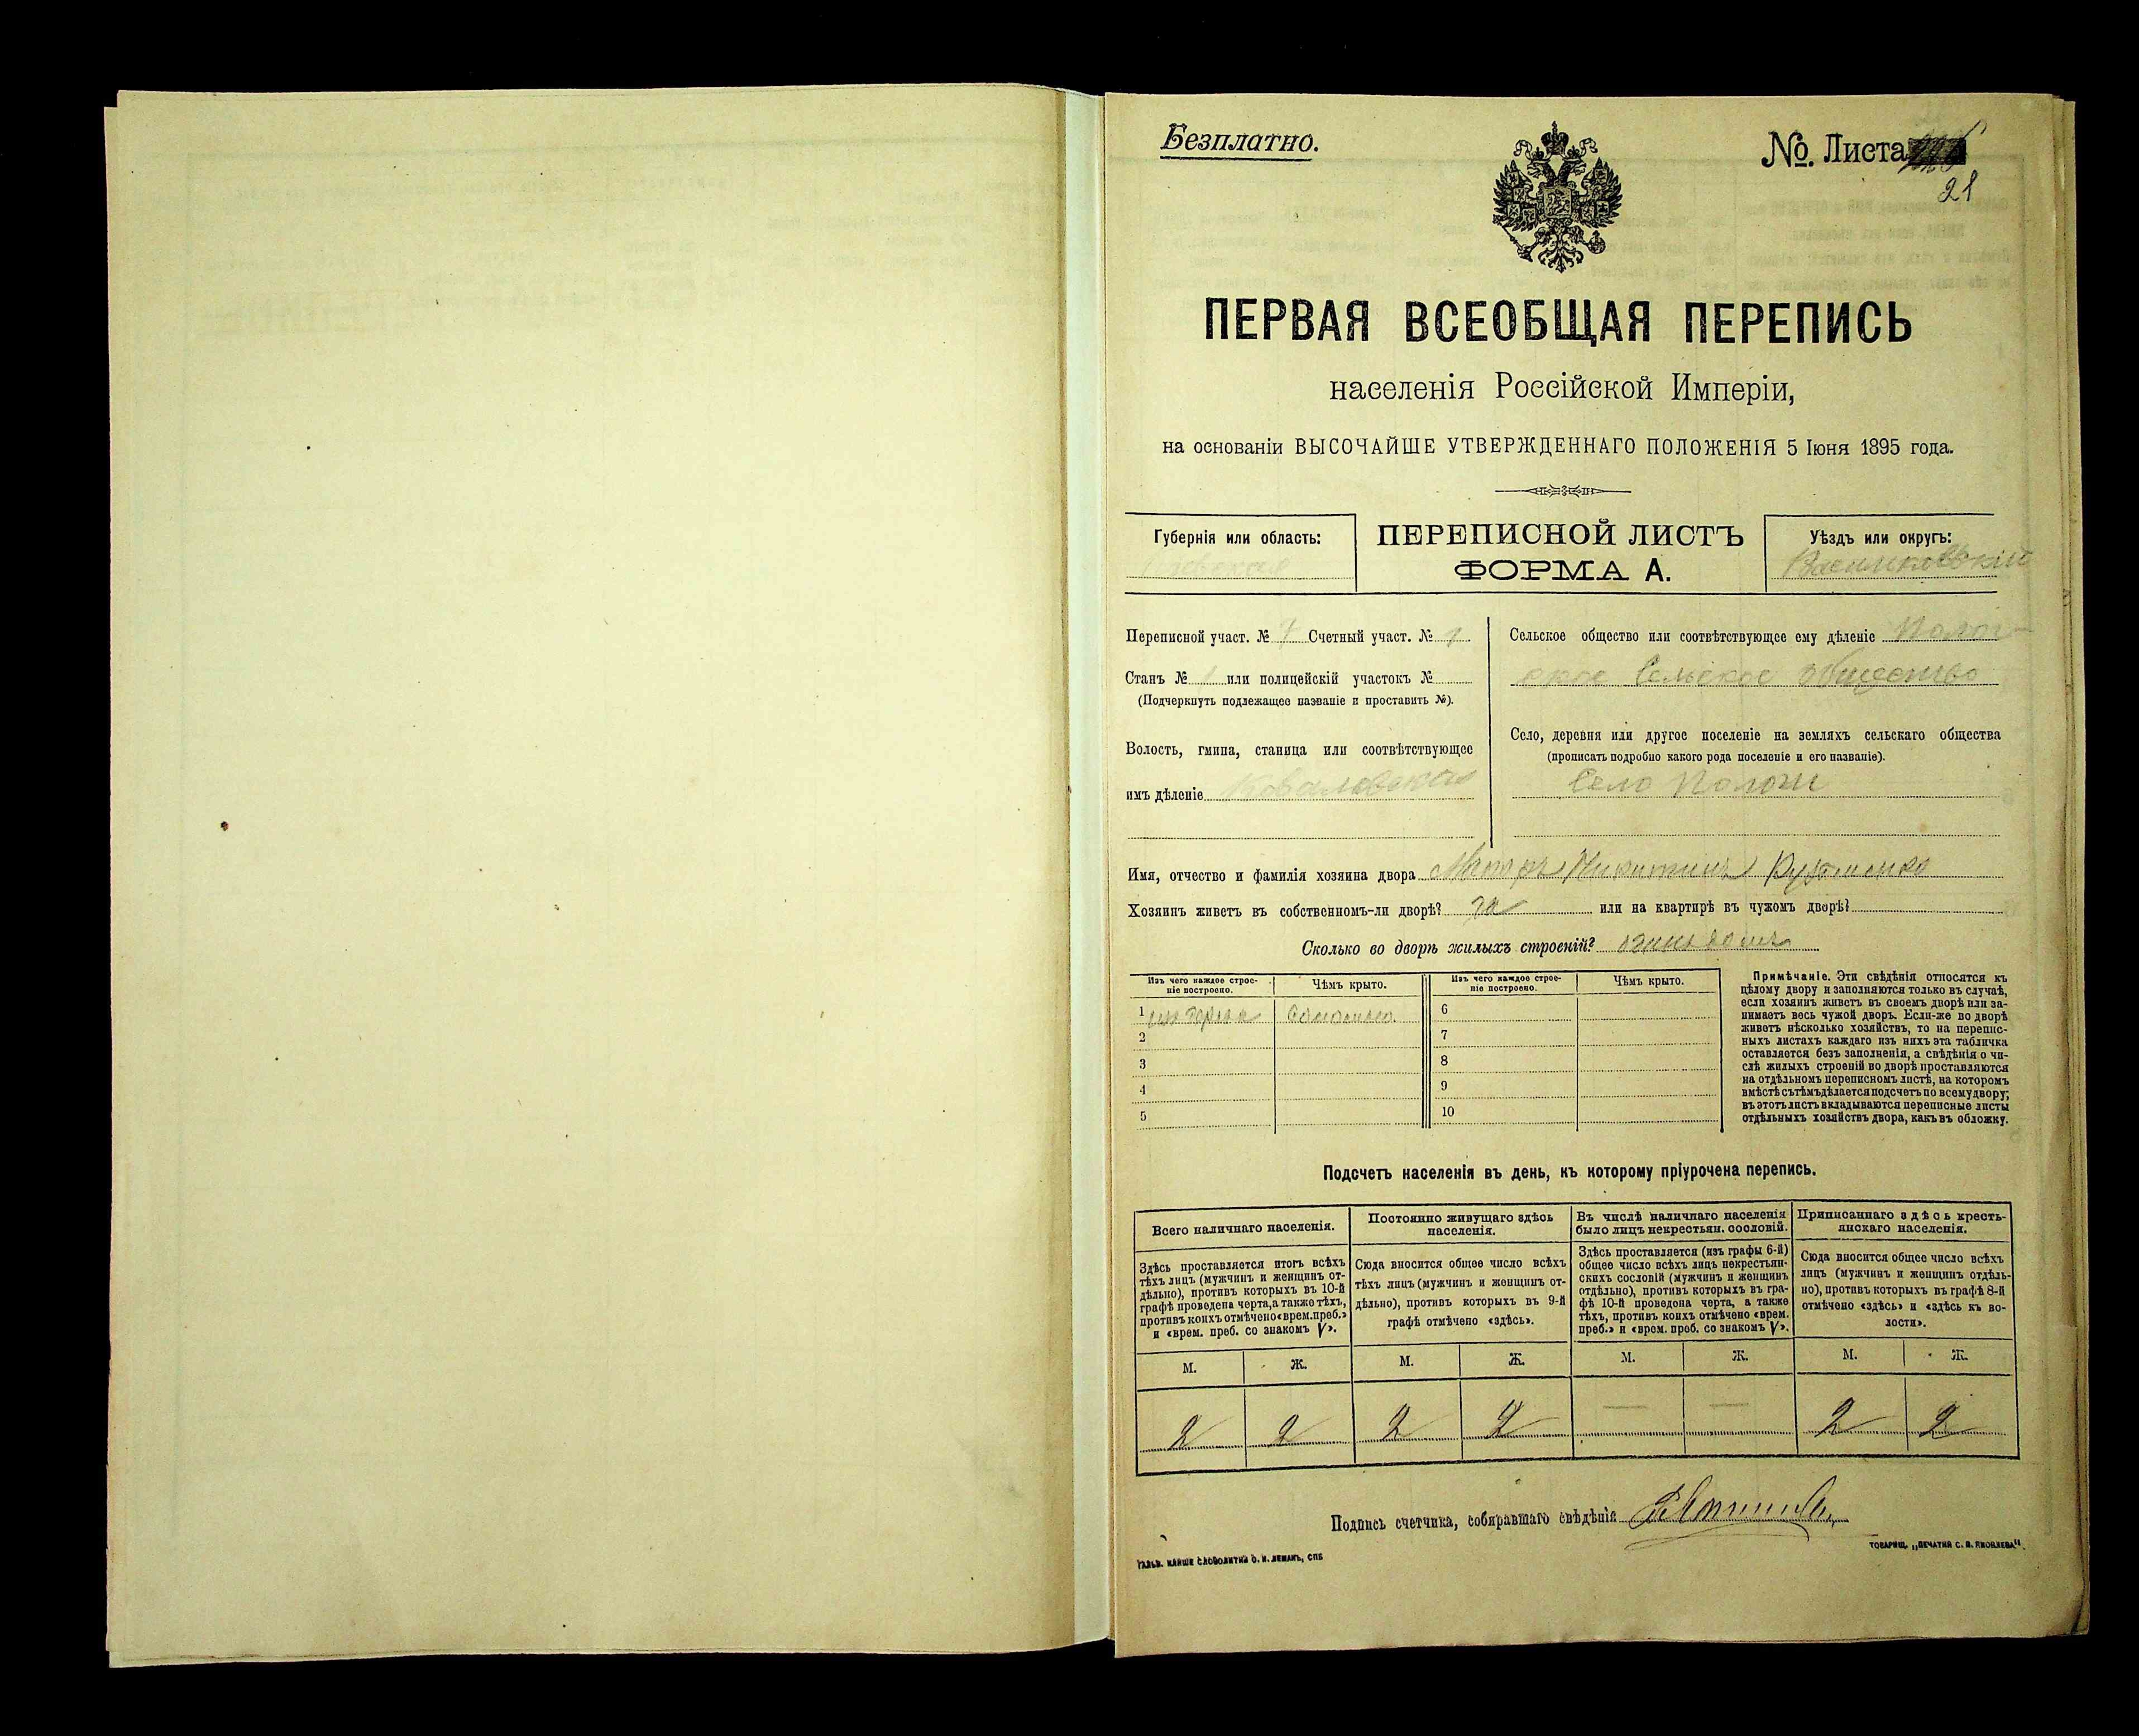 Безплатно.
№. Листа
21
ПЕРВАЯ ВСЕОБЩАЯ ПЕРЕПИСЬ
населенія Россійской Имперіи,
на основаніи ВЫСОЧАЙШЕ УТВЕРЖДЕННАГО ПОЛОЖЕНІЯ 5 Іюня 1895 года.
Губернія или область:
Кіевская
ПЕРЕПИСНОЙ ЛИСТЪ
ФОРМА А.
Уѣздъ или округъ:
Васильковскій
Переписной участ. № 7 Счетный участ. № 1
Станъ № 1 или полицейскій участокъ №
(Подчеркнуть подлежащее названіе и проставить №).
Волость, гмина, станица или соотвѣтствующее
имъ дѣленіе Ковалевская
Сельское общество или соотвѣтствующее ему дѣленіе Полог-
ское Сельское Общество
Село, деревня или другое поселеніе на земляхъ сельскаго общества
(прописать подробно какого рода поселеніе и его названіе).
Село Пологи
Имя, отчество и фамилія хозяина двора Никитинъ
Хозяинъ живетъ въ собственномъ-ли дворѣ? да или на квартирѣ въ чужомъ дворѣ?
Сколько во дворѣ жилыхъ строеній?
Изъ чего каждое строе-
ніе построено.
Чѣмъ крыто.
1 изъ дерева Соломою.
2
3
4
5
Изъ чего каждое строе-
ніе построено.
Чѣмъ крыто.
6
7
8
9
10
Примѣчаніе. Эти свѣдѣнія относятся къ
цѣлому двору и заполняются только въ случаѣ,
если хозяинъ живетъ въ своемъ дворѣ или за-
нимаетъ весь чужой дворъ. Если-же во дворѣ
живетъ нѣсколько хозяйствъ, то на перепис-
ныхъ листахъ каждаго изъ нихъ эта табличка
оставляется безъ заполненія, а свѣдѣнія о чи-
слѣ жилыхъ строеній во дворѣ проставляются
на отдѣльномъ переписномъ листѣ, на которомъ
вмѣстѣ съ тѣмъ дѣлается подсчетъ по всему двору;
въ этотъ листъ вкладываются переписные листы
отдѣльныхъ хозяйствъ двора, какъ въ обложку.
Подсчетъ населенія въ день, къ которому пріурочена перепись.
Всего наличнаго населенія.
Здѣсь проставляется итогъ всѣхъ
тѣхъ лицъ (мужчинъ и женщинъ от-
дѣльно), противъ которыхъ въ 10-й
графѣ проведена черта, а также тѣхъ,
противъ коихъ отмѣчено «врем. преб.»
и «врем. преб. со знакомъ V».
М. Ж.
2 2
Постоянно живущаго здѣсь
населенія.
Сюда вносится общее число всѣхъ
тѣхъ лицъ (мужчинъ и женщинъ от-
дѣльно), противъ которыхъ въ 9-й
графѣ отмѣчено «здѣсь».
М. Ж.
2 2
Въ числѣ наличнаго населенія
было лицъ некрестьян. сословій.
Здѣсь проставляется (изъ графы 6-й)
общее число всѣхъ лицъ некрестьян-
скихъ сословій (мужчинъ и женщинъ
отдѣльно), противъ которыхъ въ гра-
фѣ 10-й проведена черта, а также
тѣхъ, противъ коихъ отмѣчено «врем.
преб.» и «врем. преб. со знакомъ V».
М. Ж.
— —
Приписаннаго здѣсь кресть-
янскаго населенія.
Сюда вносится общее число всѣхъ
лицъ (мужчинъ и женщинъ отдѣль-
но), противъ которыхъ въ графѣ 8-й
отмѣчено «здѣсь» и «здѣсь къ во-
лости».
М. Ж.
2 2
Подпись счетчика, собиравшаго свѣдѣнія
ТОВАРИЩ. „ПЕЧАТНЯ С. П. ЯКОВЛЕВА".